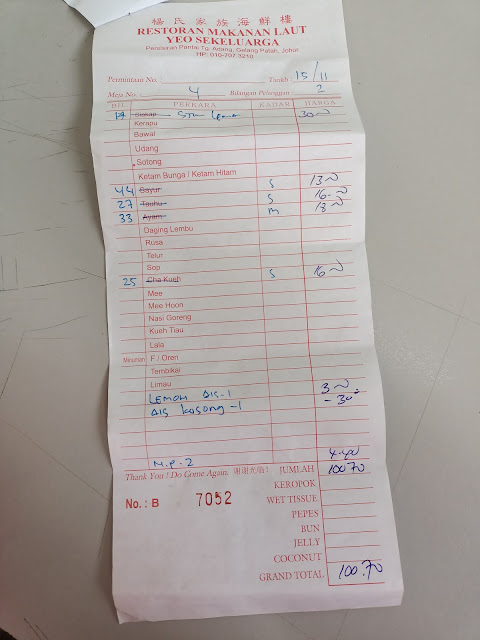 楊氏家族海鮮樓
RESTORAN MAKANAN LAUT
YEO SEKELUARGA
Persisiran Pantai Tg. Adang, Gelang Patah, Johor.
HP: 010-707 3210
Permintaan No. Tarikh : 15/11
Meja No. 4 Bilangan Pelanggan : 2
BIL PERKARA KADAR HARGA
Siakap Stim 30
Kerapu
Bawal
Udang
Sotong
Ketam Bunga / Ketam Hitam
44 Sayur S 13
27 Tauhu S 16
33 Ayam m 18
Daging Lembu
Rusa
Telur
Sop
25 Cha Kueh S 16
Mee
Mee Hoon
Nasi Goreng
Kueh Tiau
Lala
Minuman F / Oren
Tembikai
Limau
LEMON AIS-1 3
AIS KOSONG-1 -30
N.P-2 4.40
Thank You ! Do Come Again. 谢谢光临! JUMLAH 100.70
KEROPOK
No. : B 7052 WET TISSUE
PEPES
BUN
JELLY
COCONUT
GRAND TOTAL 100.70